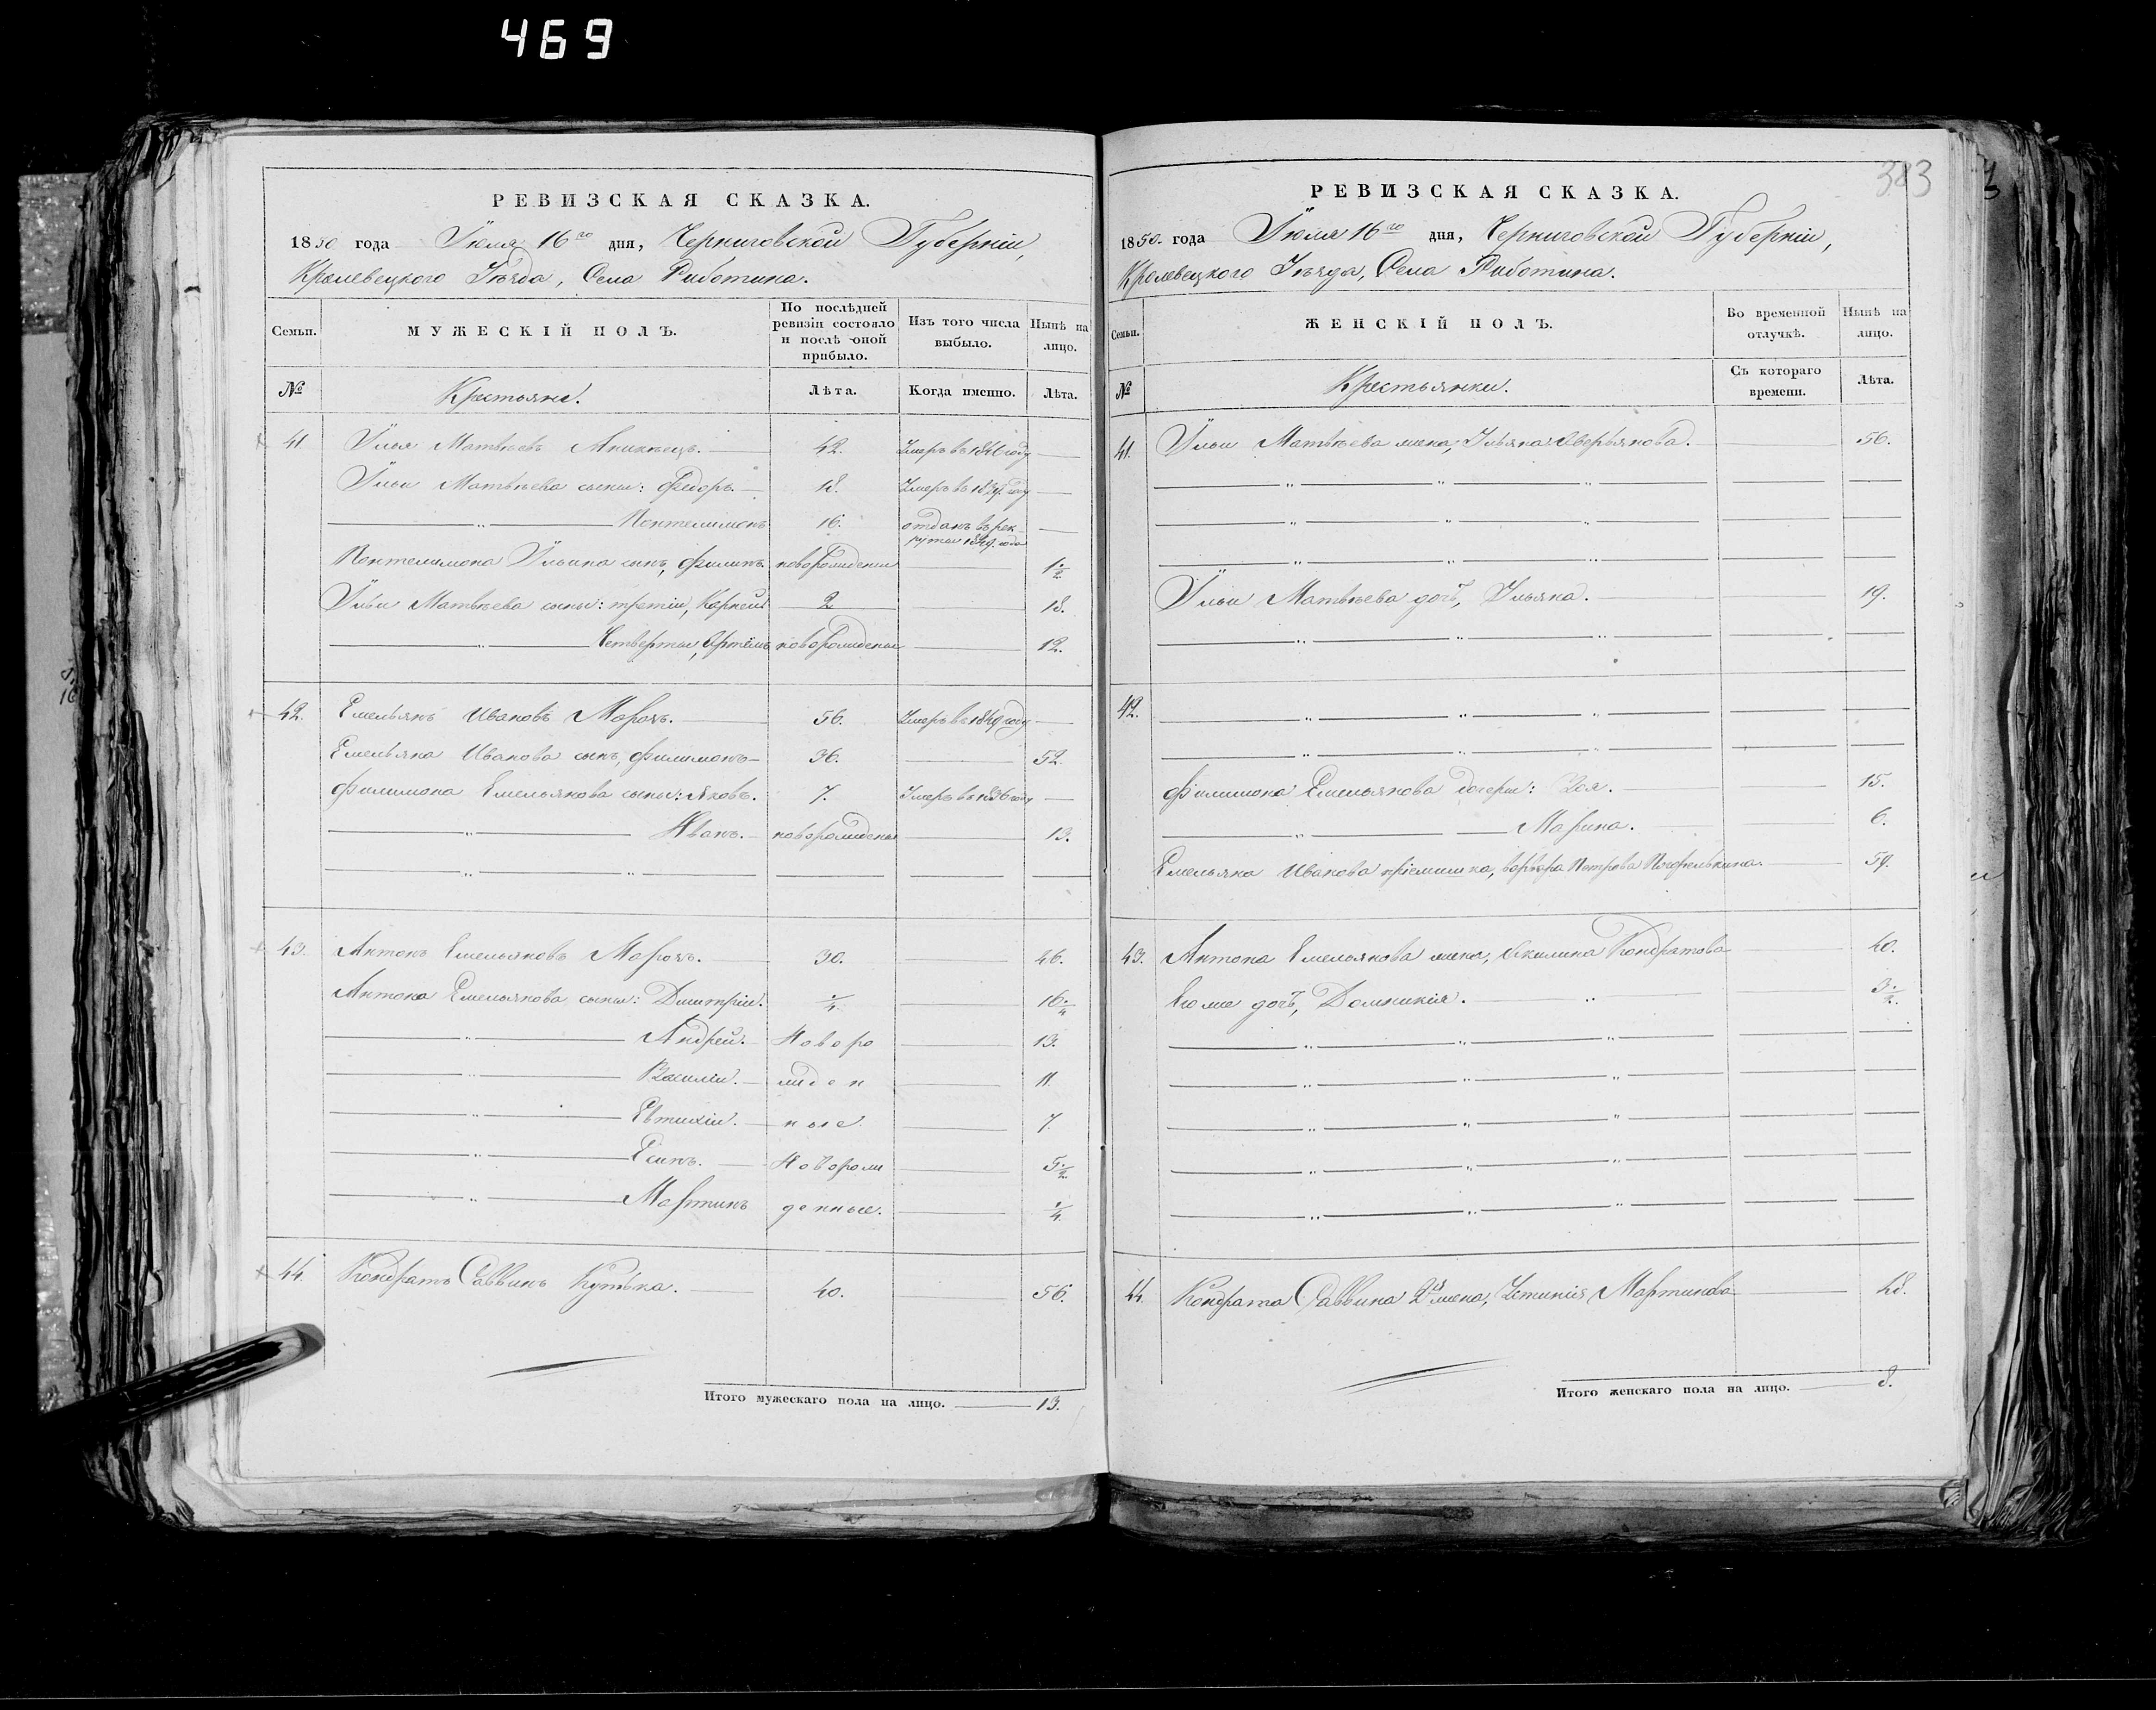 469
РЕВИЗСКАЯ СКАЗКА.
1850 года Іюля 16го дня, Черниговской Губерніи,
Кролевецкого Уѣзда, Села Риботина.
Семьи. МУЖЕСКІЙ ПОЛЪ. По послѣдней ревизіи состояло и послѣ оной прибыло. Изъ того числа выбыло. Нынѣ на лицо.
№ Крестьяне. Лѣта. Когда именно. Лѣта.
41. Илья Матвѣевъ 42. Умеръ въ 1846 году
Ильи Матвѣева сыны: Федоръ. 18. Умеръ въ году
Пантелимонъ 16. отданъ въ рекруты 1849. года
Пантелимона Ильина сынъ, Филипъ новорожденны 1/2
Ильи Матвѣева сыны: третій, Корней 2 18.
Четверты, Артемъ новорожденны 12.
42. Емельянъ Ивановъ Морозъ. 56. Умеръ въ 1849 году
Емельяна Иванова сынъ, Филимонъ 36. 52.
Филимона Емельянова сыны: Яковъ. 7. Умеръ въ 1836 году
Иванъ. новорожденны 13.
43. Антонъ Емельяновъ Морозъ. 30. 46.
Антона Емельянова сыны: Дмитрій. 1/4 16 1/4
Андрей. Новоро 13.
Василій. жден 11.
Евтихій. ные 7.
Есипъ. Новорож 5 1/2
Мартинъ денные. 1/4
44. Кондратъ Саввинъ Кутька. 40. 56.
Итого мужескаго пола на лицо. 13.
383
РЕВИЗСКАЯ СКАЗКА.
1850. года Іюля 16го дня, Черниговской Губерніи,
Кролевецкого Уѣзда, Села Риботина.
Семьи. ЖЕНСКІЙ ПОЛЪ. Во временной отлучкѣ. Нынѣ на лицо.
№ Крестьянки. Съ котораго времени. Лѣта.
41. Ильи Матвѣева жена, Ульяна Аверьянова. 56.
Ильи Матвѣева дочь, Ульяна. 19.
42.
Филимона Емельянова дочери: Зоя. 15.
Марина. 6.
Емельяна Иванова пріемишка, Варвара Петрова 59.
43. Антона Емельянова жена, Акилина Кондратова 40.
Егоже дочь, Домникія. 3 1/2
44. Кондрата Саввина 2я жена, Устинія Мартинова 48.
Итого женскаго пола на лицо. 8.